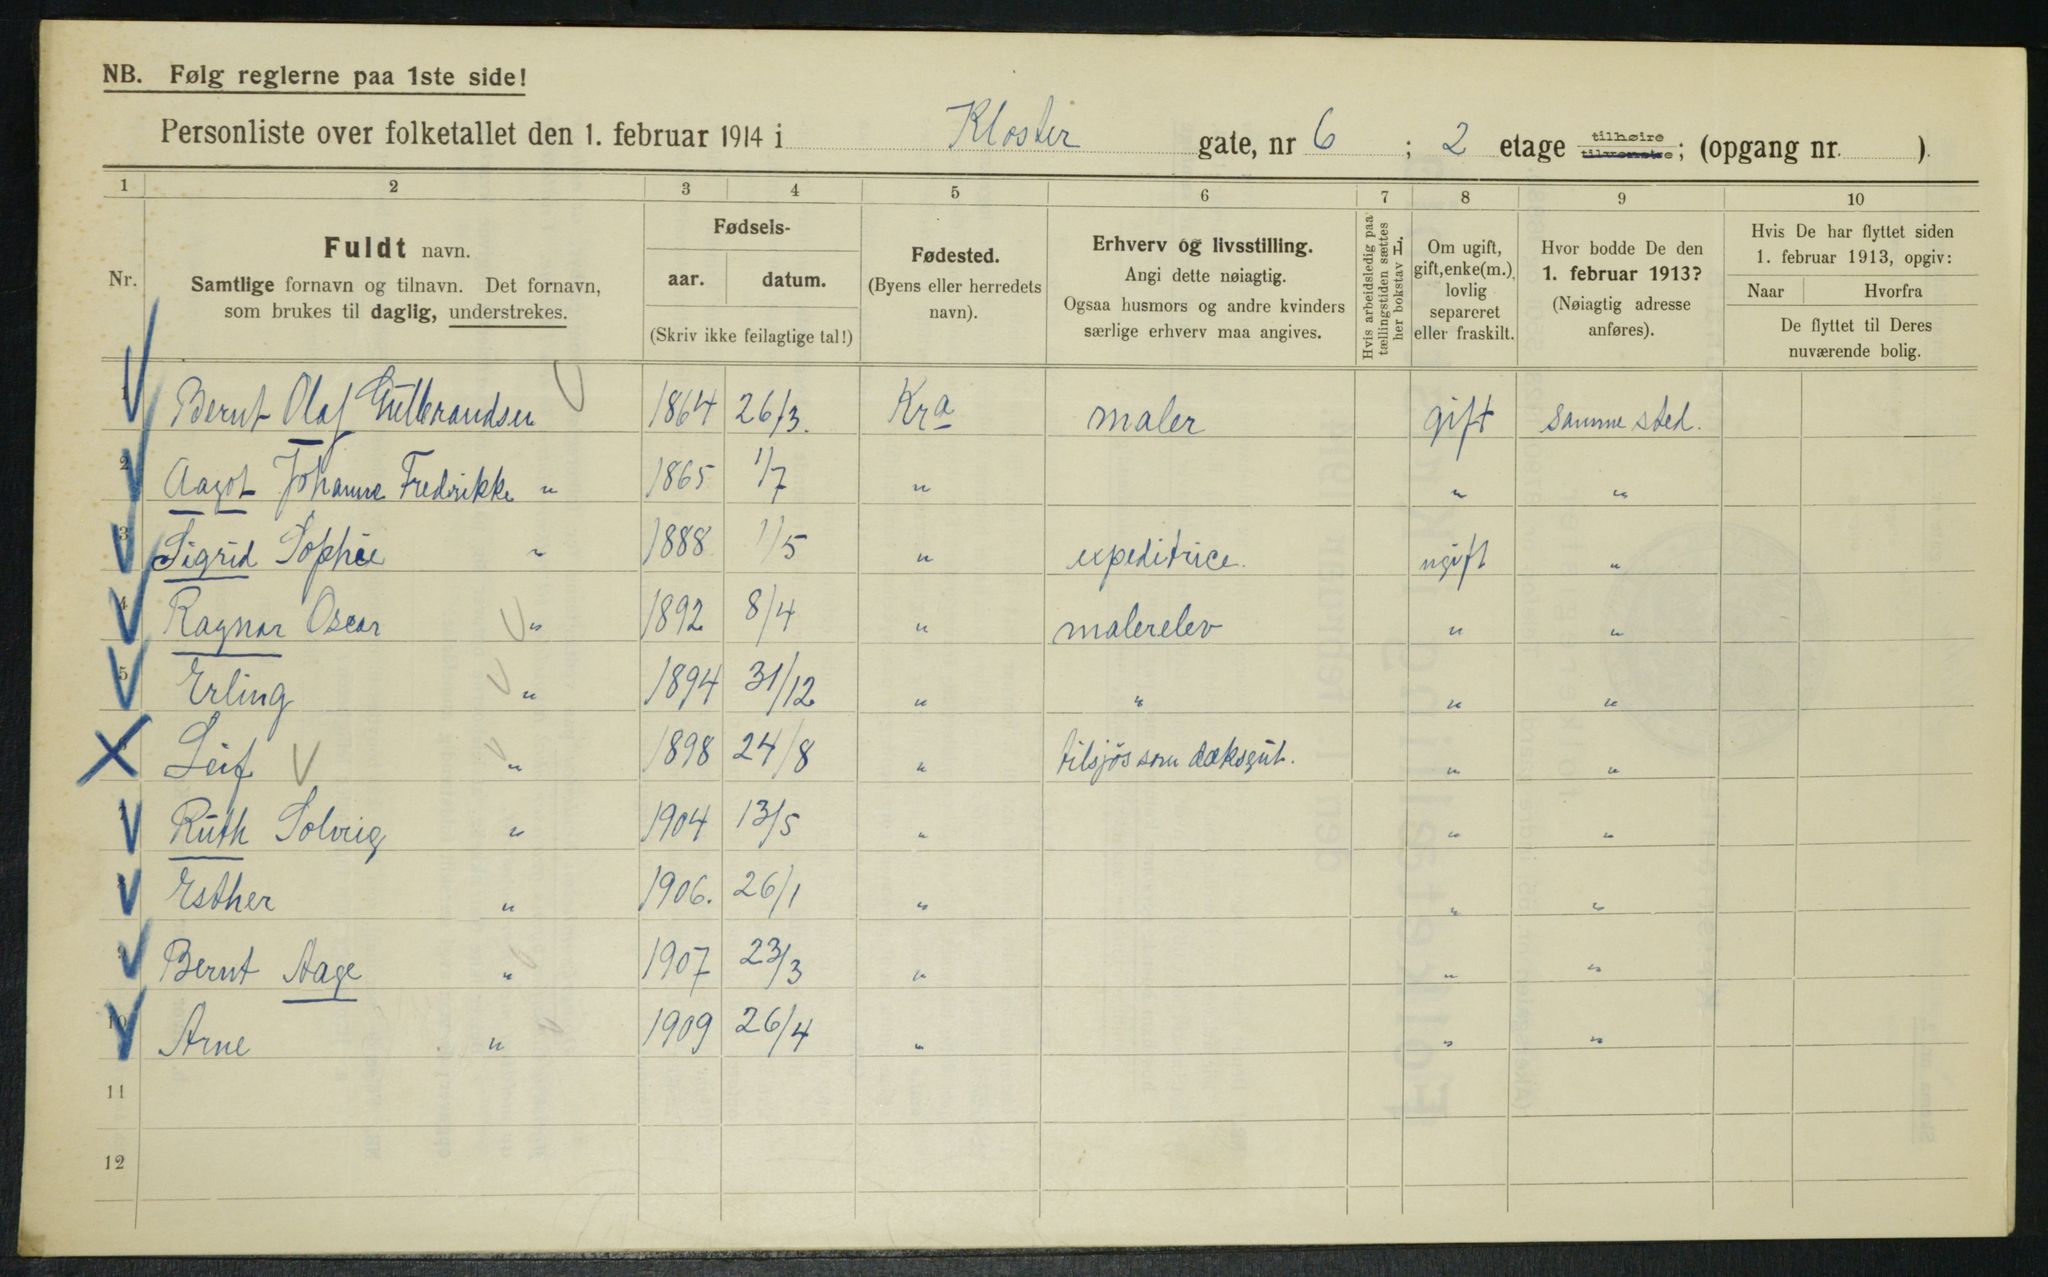 NB. Følg reglerne paa 1ste side!
Personliste over folketallet den 1. februar 1914 i Kloster gate, nr 6 ; 2 etage tilhøire tilvenstre; (opgang nr. ).
1 2 3 4 5 6 7 8 9 10
Nr.
Fuldt navn.
Samtlige fornavn og tilnavn. Det fornavn,
som brukes til daglig, understrekes.
Fødsels-
aar. datum.
(Skriv ikke feilagtige tal!)
Fødested.
(Byens eller herredets
navn).
Erhverv og livsstilling.
Angi dette nøiagtig.
Ogsaa husmors og andre kvinders
særlige erhverv maa angives.
Hvis arbeidsledig paa
tællingstiden sættes
her bokstav L.
Om ugift,
gift, enke(m.),
lovlig
separeret
eller fraskilt.
Hvor bodde De den
1. februar 1913?
(Nøiagtig adresse
anføres).
Hvis De har flyttet siden
1. februar 1913, opgiv:
Naar Hvorfra
De flyttet til Deres
nuværende bolig.
1 Bernt Olaf Gulbrandsen 1864 26/3. Kra maler gift samme sted.
2 Aagot Johanne Fredrikke " 1865 1/7 " " "
3 Sigrid Sophie " 1888 1/5 " expeditrice. ugift "
4 Ragnar Oscar " 1892 8/4 " malerelev " "
5 Erling " 1894 31/12 " " " "
6 Leif " 1898 24/8 " tilsjøs som dæksgut. " "
7 Ruth Solveig " 1904 13/5 " " "
8 Esther " 1906. 26/1 " " "
9 Bernt Aage " 1907 23/3 " " "
10 Arne " 1909 26/4 " " "
11
12